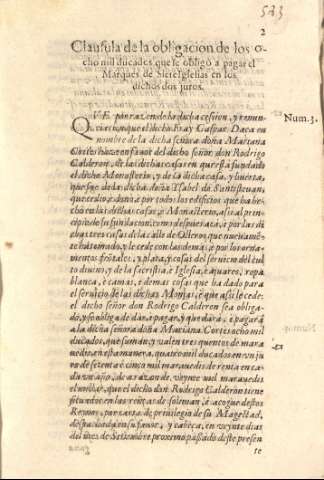 523
2
Clausula de la obligacion de los o-
cho mil ducados que se obligò a pagar el
Marques de Sieteiglesias en los
dichos dos juros.
Num. 3.
QVE por razon de la dicha cession, y renun-
ciacion que el dicho Fray Gaspar Daca en
nombre de la dicha señora doña Mariana
Cortès haze en fauor del dicho señor don Rodrigo
Calderon, de las dichas casas en que està fundado
el dicho Monasterio, y de la dicha casa, y huerta,
que fue de la dicha doña Isabel de Santisteuan,
que trocò e donò, e por todos los edificios que ha he-
cho en las dichas casas, è Monasterio, assi al prin-
cipio de su fundacion, como despues acà, è por las
tres casas de la calle de Olleros que nueuame-
te ha tomado, y le cede con las demas, è por los orna-
mentos frontales, y plata, y cosas del seruicio del cul-
to diuino, y de la sacristia è Iglesia, è axuar, ropa
blanca, è camas, è demas cosas que ha dado para
el seruicio de las dichas Monjas, è que assi le cede:
el dicho señor don Rodrigo Calderon sea obliga-
do, y se obliga de dar, è pagar, y que darà, è pagarà
a la dicha señora doña Mariana Cortès ocho mil
ducados, que suman, y valen tres quentos de mara-
uedis, en esta manera, quatro mil ducados en vn ju-
ro de setenta è cinco mil marauedis de renta en ca-
da vn año, de a razon de veynte mil marauedis
el millar, que el dicho don Rodrigo Calderon tiene
situados en las rentas de
Reynos, por carta de priuilegio de su Magestad,
despachada en su fauor, y cabeça, en veynte dias
del mes de Setiembre proximo passado deste presen
te